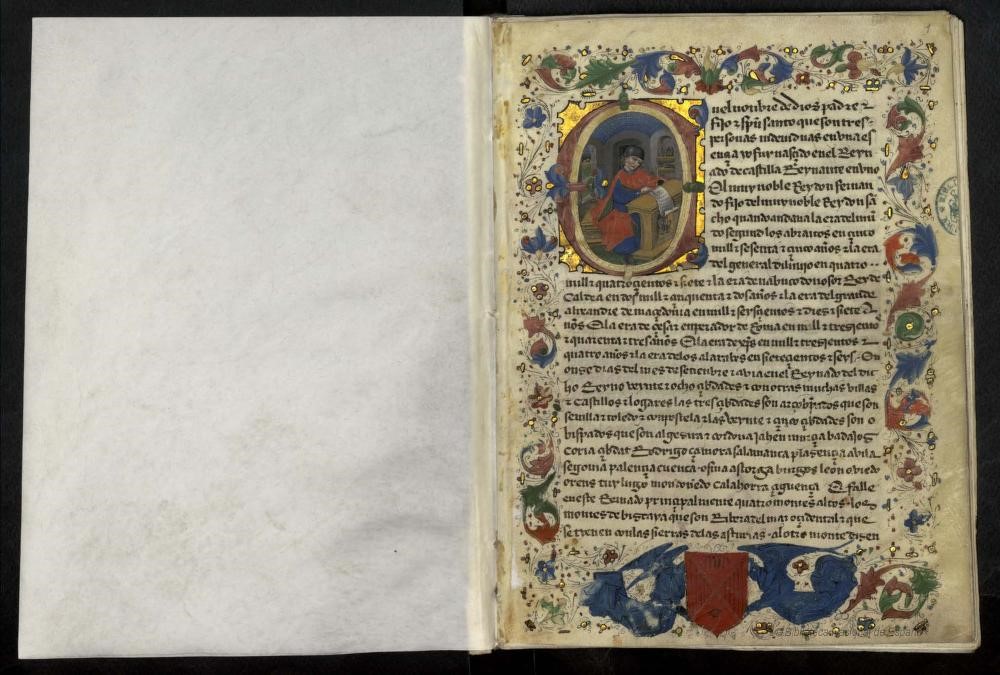 nel nonbre de dios padre ⁊
fijo ⁊ spũ santo que son tres
personas indeuiduas en vna es
ençia yo fuy nasçido en el Reyn
ado de castilla Reynante en vno
El muy noble Rey don fernan
do fijo del muy noble Rey don sã
cho quando andaua la era del mũ
do segund los abraicos en çinco
mill ⁊ sesenta ⁊ çinco años ⁊ la era
del general diluuio en quatro
mill ⁊ quatroçientos ⁊ siete ⁊ la era de nabuco donosor Rey de
Caldea en dos mill ⁊ çinquenta ⁊ dos años ⁊ la era del grande
alixandre de maçedonia en mill ⁊ seysçientos ⁊ dies ⁊ siete a
ños E la era de çesar enperador de Roma en mill ⁊ tresçientos
⁊ quarenta ⁊ tres años E la era de xp̃s en mill ⁊ tresçientos ⁊
quatro años ⁊ la era de los alarabes en seteçientos ⁊ seys En
onse dias del mes de setienbre ⁊ auia en el Reynado del di
ho Reyno veynte ⁊ ocho çibdades ⁊ con otras muchas villas
⁊ Castillos ⁊ logares las tres çibdades son arçobispados que son
seuilla ⁊ toledo ⁊ conpostela ⁊ las veynte ⁊ çinco çibdades son o
bispados que son algesira ⁊ cordoua jahen murçia badajos
Coria çibdat Rodrigo çamora salamanca plasençia auila
segouia palençia cuenca osma astorga burgos leon ouiedo
orens tuy lugo mondoñedo Calahorra çiguença E falle
en este Reinado prinçipalmente quatro montes altos los
montes de biscaya que son Ribera del mar oçidental ⁊ que
se tyenen con las sierras de las asturias al otro monte disen
Biblioteca Nacional de España